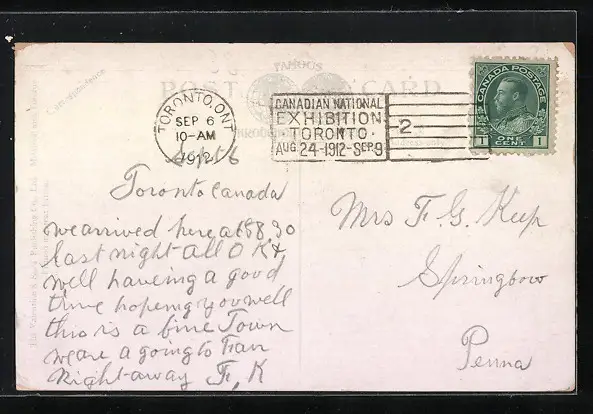 FAMOUS
POST CARD
TORONTO, ONT
SEP 6
10-AM
1912
CANADIAN NATIONAL
EXHIBITION
TORONTO
AUG. 24-1912-SEP. 9
2
CANADA POSTAGE
1 ONE CENT 1
Sept 6
Toronto Canada
we arrived here at 8 30
last night all O K +
well haveing a good
time hopeing you well
this is a fine Town
we are a going to Fair
Right away F, K
Mrs F. G. Keep
Springboro
Penna